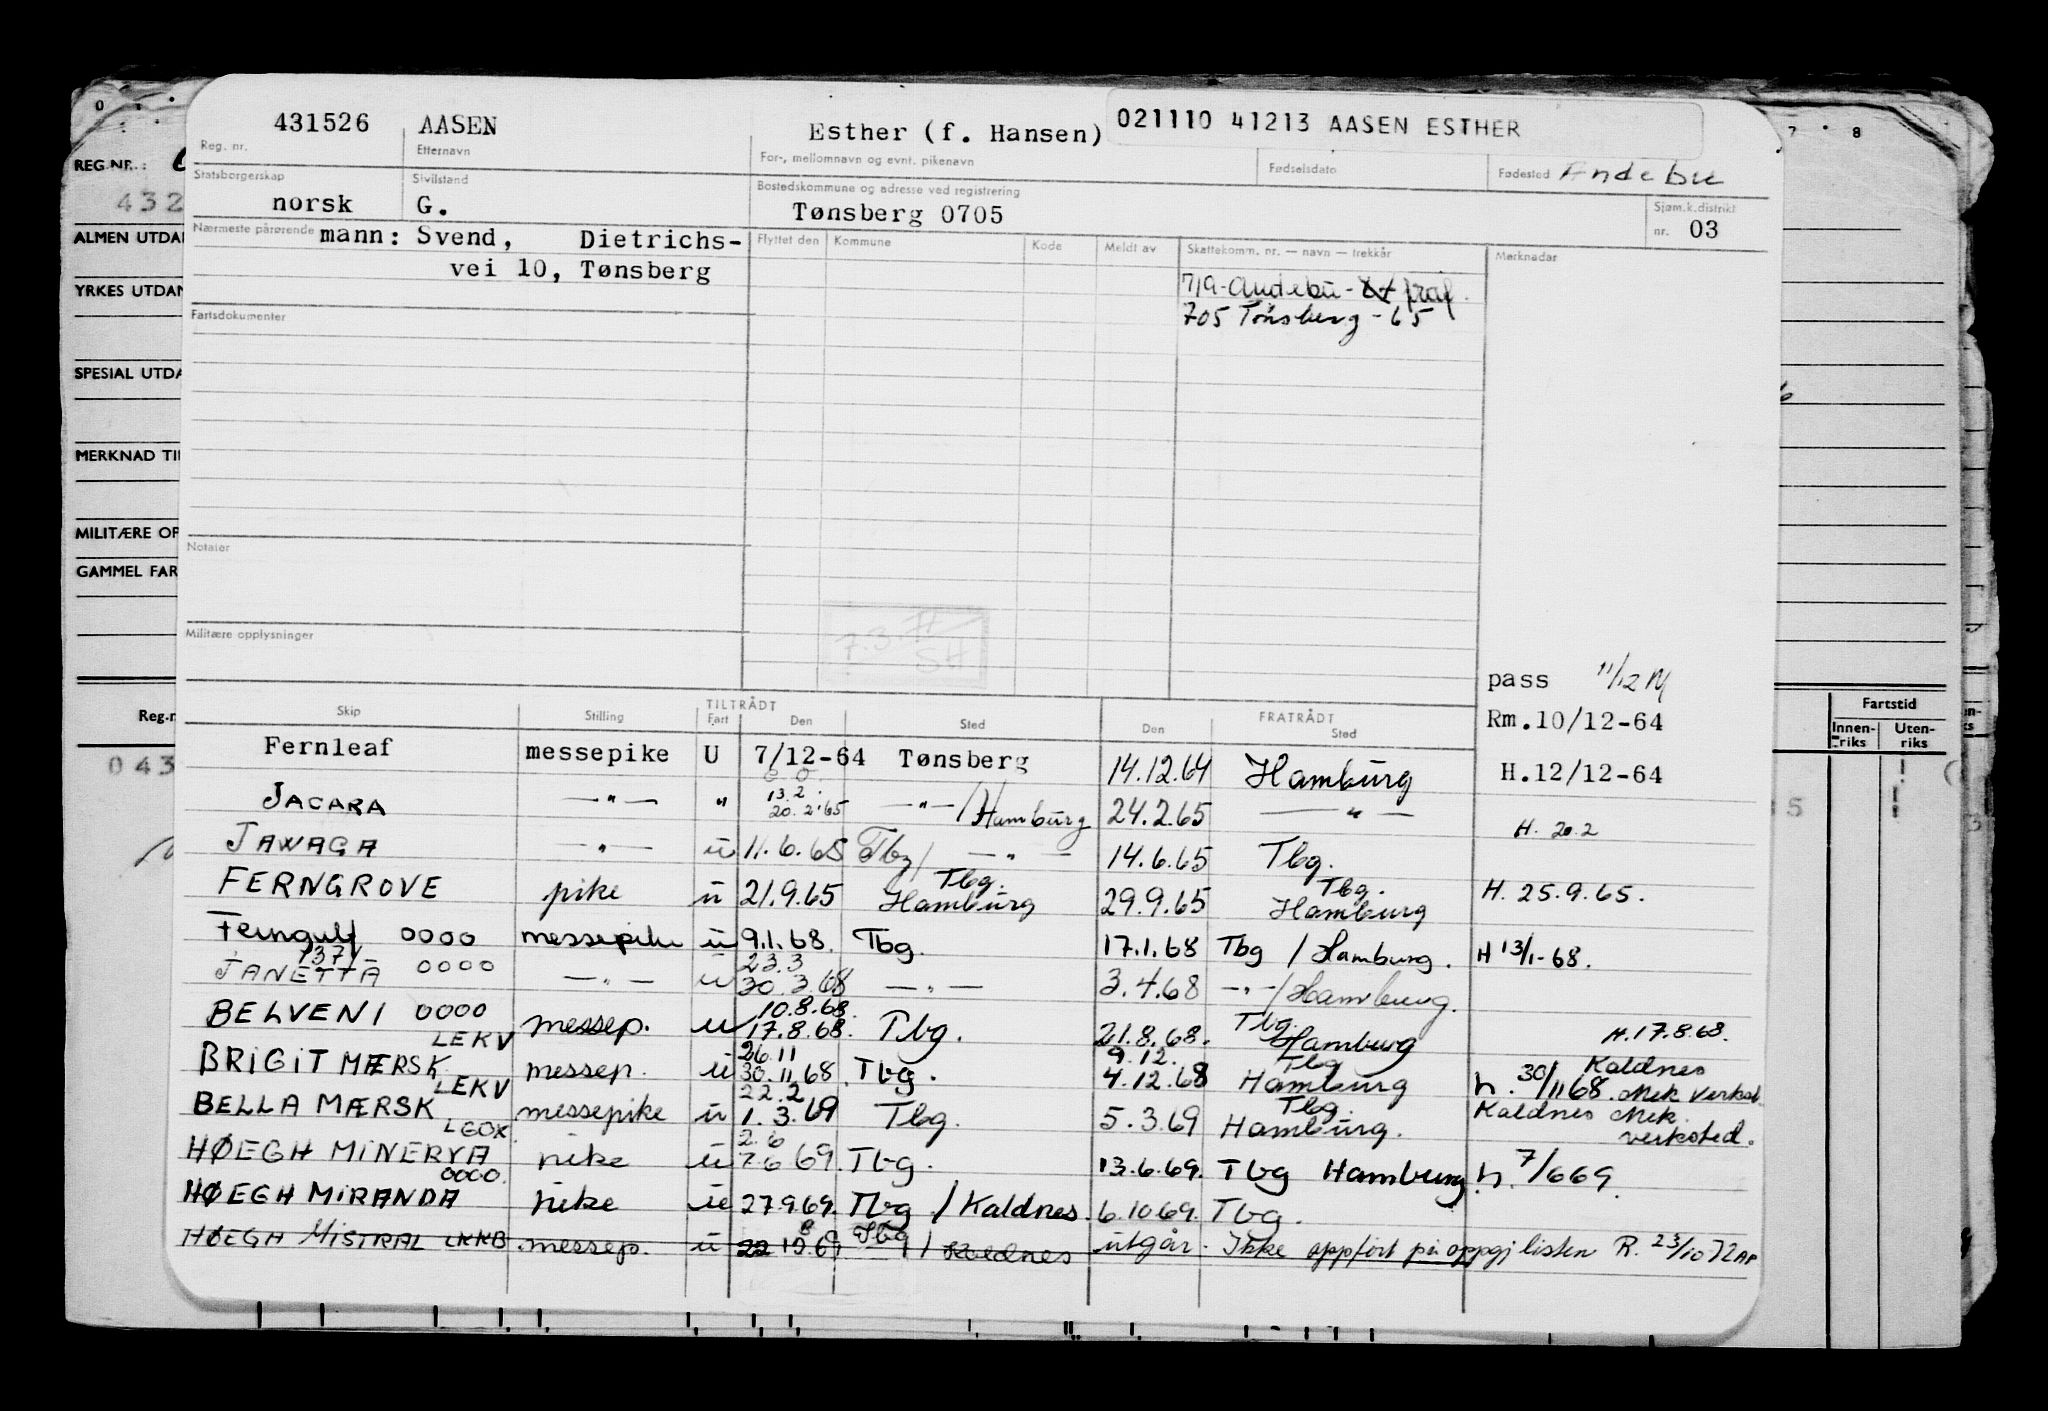 431526 AASEN Esther (f. Hansen) 021110 41213 AASEN ESTHER
Reg. nr. Etternavn For-, mellomnavn og evnt. pikenavn Fødselsdato Fødested Andebu
Statsborgerskap Sivilstand Bostedskommune og adresse ved registrering Sjøm.k.distrikt
norsk G. Tønsberg 0705 nr. 03
Nærmeste pårørende mann: Svend, Dietrichs- Flyttet den Kommune Kode Meldt av Skattekomm. nr. — navn — trekkår Merknader
vei 10, Tønsberg
719-Andebu-
705 Tønsberg-65
Fartsdokumenter
Notater
Militære opplysninger
7.3
SH
pass 11/12
Rm.10/12-64
H.12/12-64
Skip Stilling TILTRÅDT Fart Den Sted FRATRÅDT Den Sted
Fernleaf messepike U 7/12-64 Tønsberg 14.12.64 Hamburg
13.2.
JACARA —"— " 20.2.65 —"—/Hamburg 24.2.65 —"— H. 20.2
JAWAGA —"— u 11.6.65 Tbg/ —"— 14.6.65 Tbg.
Tbg. Tbg.
FERNGROVE pike u 21.9.65 Hamburg 29.9.65 Hamburg H. 25.9.65.
Ferngulf 0000 messepike u 9.1.68. Tbg. 17.1.68 Tbg / Hamburg. H 13/1-68.
23.3
JANETTA 0000 —"— u 30.3.68 —"— 3.4.68 —"—/Hamburg.
10.8.68.
BELVENI 0000 messep. u 17.8.68. Tbg. 21.8.68. Tbg. Hamburg H.17.8.68.
LEKV 26.11 9.12. Tbg Kaldnes
BRIGIT MÆRSK messep. u 30.11.68 Tbg. 4.12.68 Hamburg h. 30/11 68. Mek Verkst.
LEKV 22.2 Tbg. Kaldnes Mek.
BELLA MÆRSK messepike u 1.3.69 Tbg. 5.3.69 Hamburg. verksted.
LGOX 2.6
HØEGH MINERVA pike u 7.6 69. Tbg. 13.6.69. Tbg Hamburg h. 7/6 69.
0000.
HØEGH MIRANDA pike u 27.9.69. Tbg / Kaldnes. 6.10.69. Tbg.
HØEGH MISTRAL LKKB messep. u 69 Tbg / Kaldnes utgår. Ikke oppført på oppgj listen R. 23/10 72
REG.NR.:
432
ALMEN UTDA
YRKES UTDAN
SPESIAL UTDA
MERKNAD TI
MILITÆRE OP
GAMMEL FAR
Reg.-n
043
0
7 8
Fartstid
Innen-riks Uten-riks